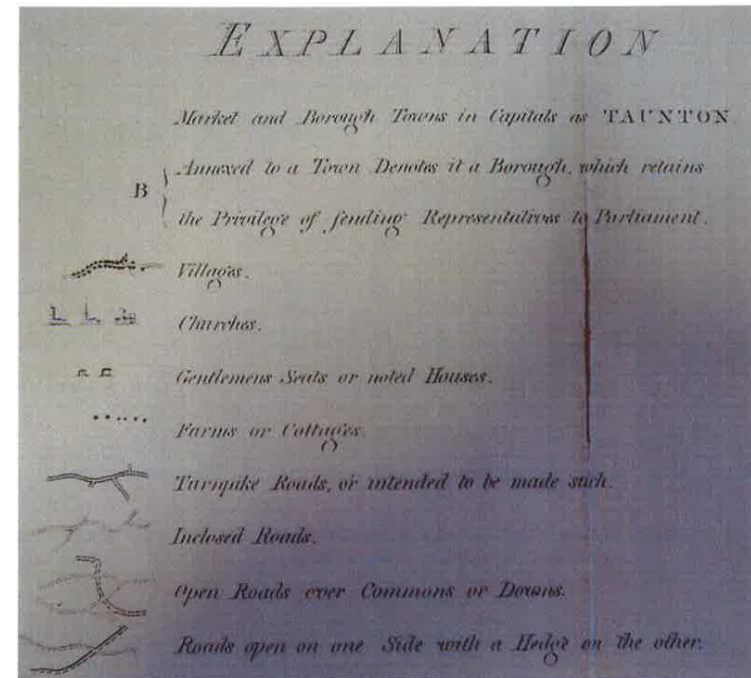 EXPLANATION
Market and Borough Towns in Capitals as TAUNTON
B { Annexed to a Town Denotes it a Borough, which retains
the Privilege of sending Representatives to Parliament.
Villages.
Churches.
Gentlemens Seats or noted Houses.
Farms or Cottages.
Turnpike Roads, or intended to be made such.
Inclosed Roads.
Open Roads over Commons or Downs.
Roads open on one Side with a Hedge on the other.